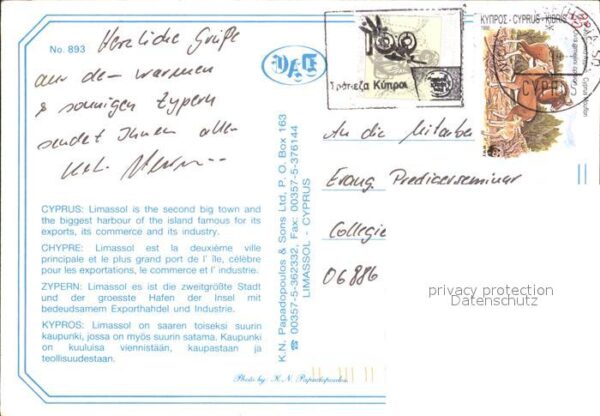 No. 893
Herzliche Grüße
aus dem warmen
& sonnigen Zypern
sendet Ihnen allen
CYPRUS: Limassol is the second big town and
the biggest harbour of the island famous for its
exports, its commerce and its industry.
CHYPRE: Limassol est la deuxième ville
principale et le plus grand port de l' île, célèbre
pour les exportations, le commerce et l' industrie.
ZYPERN: Limassol es ist die zweitgrößte Stadt
und der groesste Hafen der Insel mit
bedeudsamem Exporthandel und Industrie.
KYPROS: Limassol on saaren toiseksi suurin
kaupunki, jossa on myös suurin satama. Kaupunki
on kuuluisa viennistään, kaupastaan ja
teollisuudestaan.
Photo by: K. N. Papadopoulos
K.N. Papadopoulos & Sons Ltd, P. O. Box 163
☎ 00357-5-362332, Fax: 00357-5-376144
LIMASSOL - CYPRUS
100
Τράπεζα Κύπρου
ΚΥΠΡΟΣ - CYPRUS - KIBRIS
An die Mitarbei
Evang. Predigerseminar
Collegie
06886
privacy protection
Datenschutz